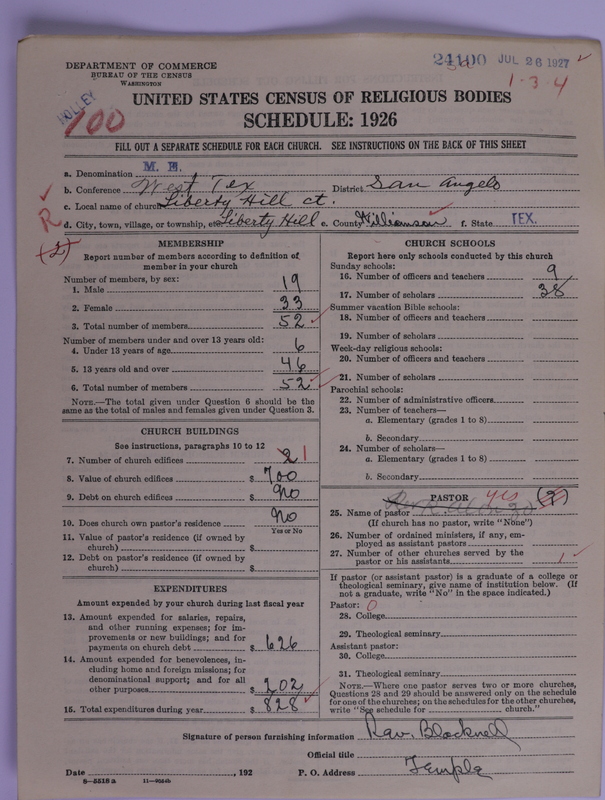 DEPARTMENT OF COMMERCE
BUREAU OF THE CENSUS
WASHINGTON
24100 JUL 26 1927
1-3-4
HOLLEY
100
UNITED STATES CENSUS OF RELIGIOUS BODIES
SCHEDULE: 1926
FILL OUT A SEPARATE SCHEDULE FOR EACH CHURCH. SEE INSTRUCTIONS ON THE BACK OF THIS SHEET
a. Denomination M. E.
b. Conference West Tex District San Angelo
c. Local name of church Liberty Hill ct.
R
d. City, town, village, or township, etc. Liberty Hill e. County Williamson f. State TEX.
(2)
MEMBERSHIP
Report number of members according to definition of
member in your church
Number of members, by sex:
1. Male 19
2. Female 33
3. Total number of members 52
Number of members under and over 13 years old:
4. Under 13 years of age 6
5. 13 years old and over 46
6. Total number of members 52
NOTE.—The total given under Question 6 should be the
same as the total of males and females given under Question 3.
CHURCH BUILDINGS
See instructions, paragraphs 10 to 12
7. Number of church edifices 2 1
8. Value of church edifices $ 700
9. Debt on church edifices $ No
10. Does church own pastor's residence No
Yes or No
11. Value of pastor's residence (if owned by
church) $
12. Debt on pastor's residence (if owned by
church) $
EXPENDITURES
Amount expended by your church during last fiscal year
13. Amount expended for salaries, repairs,
and other running expenses; for im-
provements or new buildings; and for
payments on church debt $ 626
14. Amount expended for benevolences, in-
cluding home and foreign missions; for
denominational support; and for all
other purposes $ 202
15. Total expenditures during year $ 828
CHURCH SCHOOLS
Report here only schools conducted by this church
Sunday schools:
16. Number of officers and teachers 9
17. Number of scholars 38
Summer vacation Bible schools:
18. Number of officers and teachers
19. Number of scholars
Week-day religious schools:
20. Number of officers and teachers
21. Number of scholars
Parochial schools:
22. Number of administrative officers
23. Number of teachers—
a. Elementary (grades 1 to 8)
b. Secondary
24. Number of scholars—
a. Elementary (grades 1 to 8)
b. Secondary
PASTOR yes (?)
25. Name of pastor
(If church has no pastor, write "None")
26. Number of ordained ministers, if any, em-
ployed as assistant pastors
27. Number of other churches served by the
pastor or his assistants 1
If pastor (or assistant pastor) is a graduate of a college or
theological seminary, give name of institution below. (If
not a graduate, write "No" in the space indicated.)
Pastor: 0
28. College
29. Theological seminary
Assistant pastor:
30. College
31. Theological seminary
NOTE.—Where one pastor serves two or more churches,
Questions 28 and 29 should be answered only on the schedule
for one of the churches; on the schedules for the other churches,
write "See schedule for church."
Signature of person furnishing information Rev. Blacknell
Official title
Date , 192 P. O. Address Temple
8—5518 a